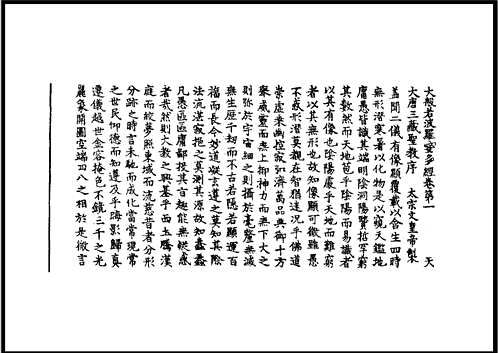 大般若波羅蜜多經卷第一 天
大唐三藏聖教序 太宗文皇帝製
蓋聞二儀有像顯覆載以含生四時
無形潛寒暑以化物是以窺天鑑地
庸愚皆識其端明陰洞陽賢哲罕窮
其數然而天地苞乎陰陽而易識者
以其有像也陰陽處乎天地而難窮
者以其無形也故知像顯可徵雖愚
不惑形潛莫覩在智猶迷況乎佛道
崇虛乘幽控寂弘濟萬品典御十方
舉威靈而無上抑神力而無下大之
則彌於宇宙細之則攝於毫釐無滅
無生歷千劫而不古若隱若顯運百
福而長今妙道凝玄遵之莫知其際
法流湛寂挹之莫測其源故知蠢蠢
凡愚區區庸鄙投其旨趣能無疑惑
者哉然則大教之興基乎西土騰漢
庭而皎夢照東域而流慈昔者分形
分跡之時言未馳而成化當常現常
之世民仰德而知遵及乎晦影歸真
遷儀越世金容掩色不鏡三千之光
麗象開圖空端四八之相於是微言